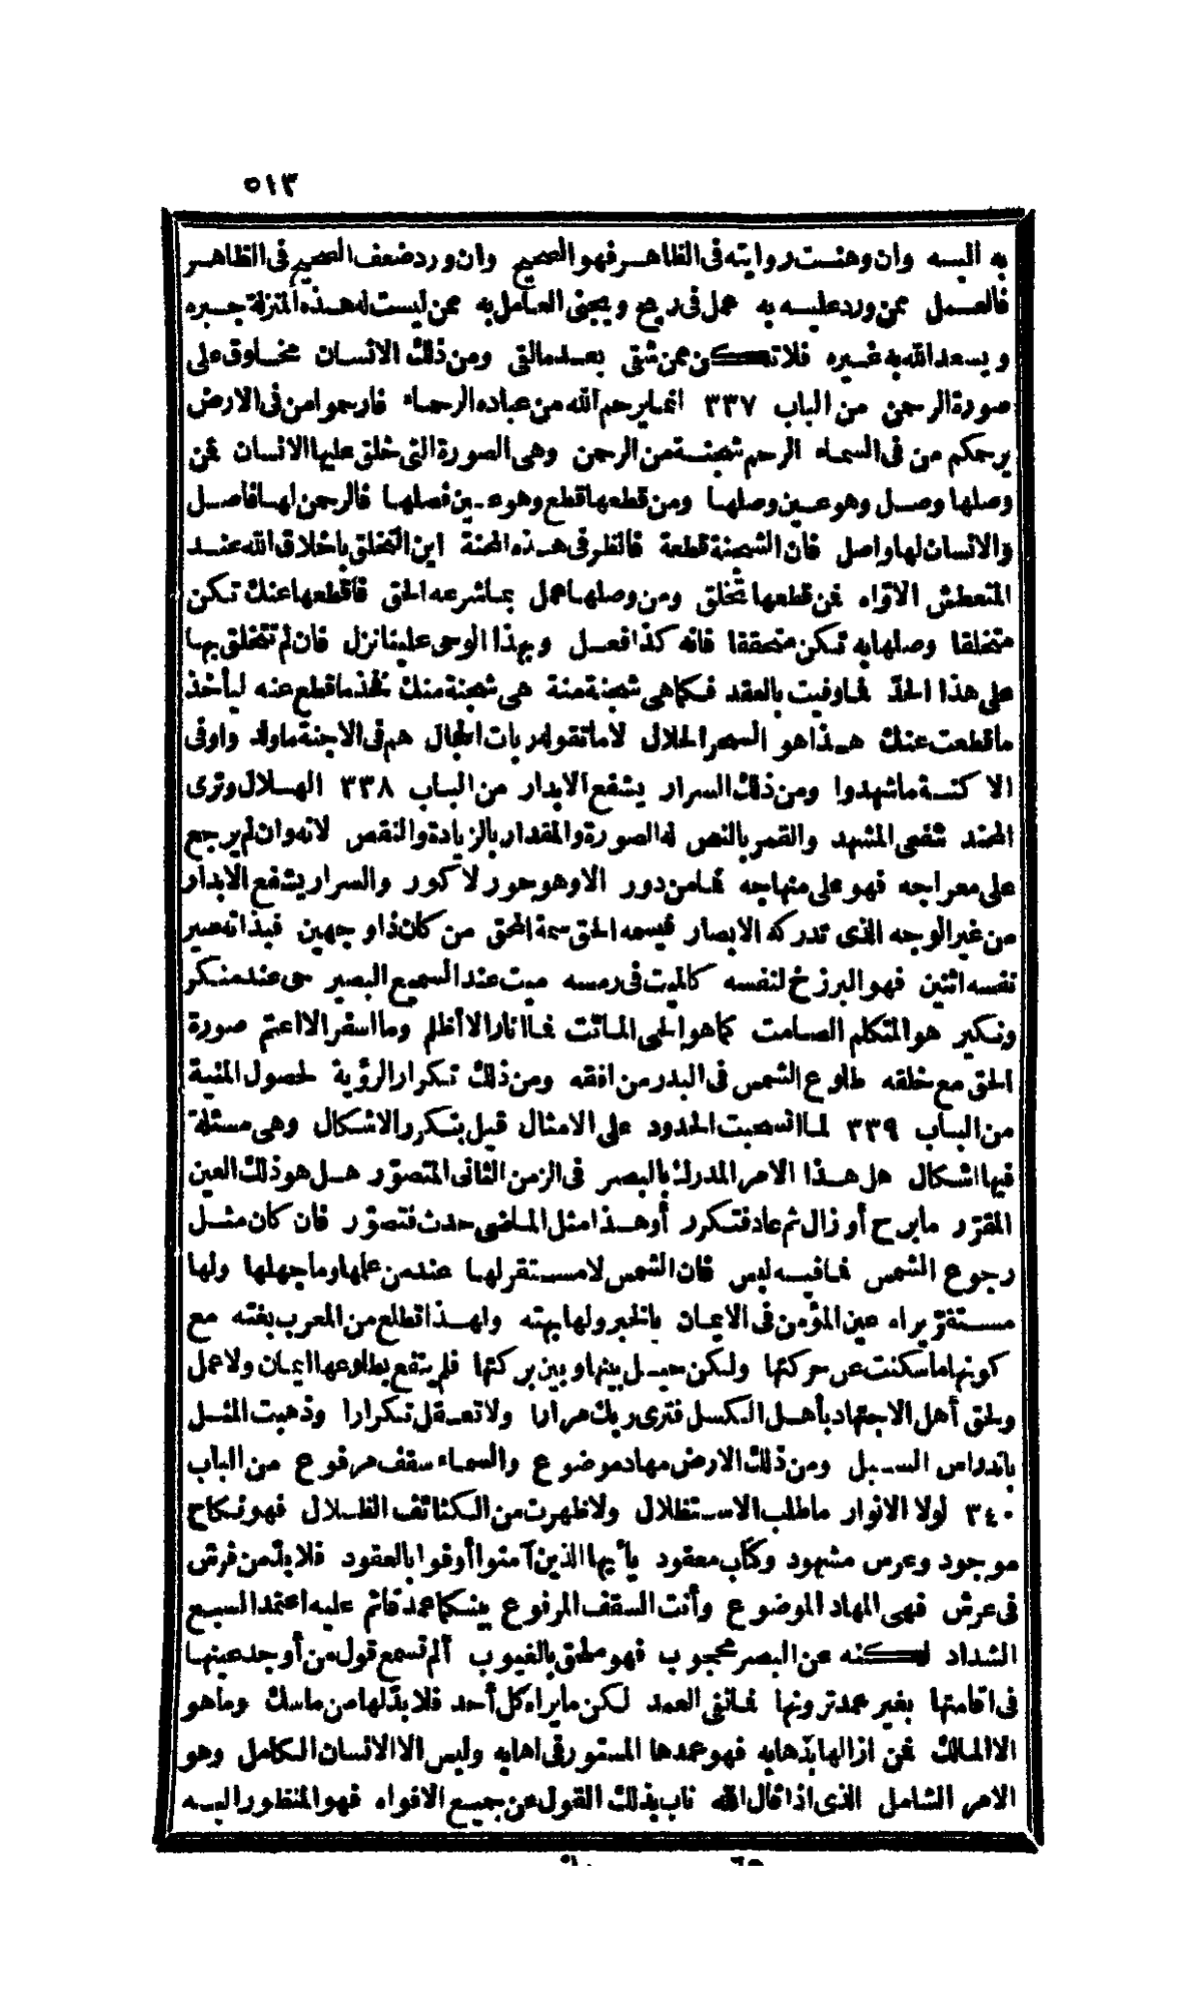 ٥١٣
به اليسه وان وهنت روايته فى الظاهر فهو الصحيح وان ورد ضعف الصحيح فى الظاهر
فالعمل ممن ورد عليه به عمل فى ريح ويجنى العامل به ممن ليست له هذه المنزلة خبره
ويسعد الله به غيره فلا تكن ممن شقى بعد ما لقى ومن ذلك الانسان مخلوق على
صورة الرحمن من الباب ٣٣٧ انما يرحم الله من عباده الرحماء فارحموا من فى الارض
يرحمكم من فى السماء الرحم شجنة من الرحمن وهى الصورة التى خلق عليها الانسان فمن
وصلها وصل وهو عين وصلها ومن قطعها قطع وهو عين فصلها فالرحمن لها فاصل
والانسان لها واصل فان الشجنة قطعة فانظر فى هذه المحنة اين التخلق باخلاق الله عند
المتعطش الاوّاه فمن قطعها تخلق ومن وصلها عمل بما شرعه الحق فاقطعها عنك تكن
متخلقا وصلها به تكن متحققا فانه كذا فعل وبهذا الوحى علينا نزل فان لم تتخلق بها
على هذا الحدّ فما وفيت بالعقد فكما هى شجنة منه هى شجنة منك فخذ ما قطع عنه ليأخذ
ما قطعت عنك هذا هو السحر الحلال لا ما تقوله ربات الحجال هم فى الاجنة ما ولد واوفى
الاكنة ما شهدوا ومن ذلك السرار يشفع الابدار من الباب ٣٣٨ الهلال وترى
المحتد شفعى المشهد والقمر بالنص له الصورة والمقدار بالزيادة والنقص لانه وان لم يرجع
على معراجه فهو على منهاجه فما من دور الا وهو حور لا كور والسرار يشفع الابدار
من غير الوجه الذى تدركه الابصار فيسمه الحق سمة المحق من كان ذا وجهين فبذاته صير
نفسه اثنين فهو البرزخ لنفسه كالميت فى رمسه ميت عند السميع البصير حى عند منكر
ونكير هو المتكلم الصامت كما هو الحى المائت فما انار الا أظلم وما اسفر الا اعتم صورة
الحق مع خلقه طلوع الشمس فى البدر من افقه ومن ذلك تكرار الرؤية لحصول المنية
من الباب ٣٣٩ لما انسحبت الحدود على الامثال قيل بتكرر الاشكال وهى مسئلة
فيها اشكال هل هذا الامر المدرك بالبصر فى الزمن الثانى المتصوّر هل هو ذلك العين
المقرّر ما برح أو زال ثم عاد فتكرر أو هذا مثل الماضى حدث فتصوّر فان كان مثل
رجوع الشمس فما فيه لبس فان الشمس لا مستقر لها عند من علمها وما جهلها ولها
مستقرّ يراه عين المؤمن فى الايمان بالخبر ولها بهته ولهذا تطلع من المغرب بغته مع
كونها ما سكنت عن حركتها ولكن حيل بينها وبين بركتها فلم ينتفع بطلوعها ايمان ولا عمل
ولحق أهل الاجتهاد بأهل الكسل فترى ربك مرارا ولا تعقل تكرارا وذهبت المثل
باندراس السبل ومن ذلك الارض مهاد موضوع والسماء سقف مرفوع من الباب
٣٤٠ لولا الانوار ما طلب الاستظلال ولا ظهرت من الكثائف الظلال فهو نكاح
موجود وعرس مشهود وكتاب معقود يا أيها الذين آمنوا أوفوا بالعقود فلا بدّ من فرش
فى عرش فهى المهاد الموضوع وأنت السقف المرفوع بينكما عمد قائم عليه اعتمد السبع
الشداد لكنه عن البصر محجوب فهو ملحق بالغيوب ألم تسمع قول من أوجد عينها
فى اقامتها بغير عمد ترونها فما نفى العمد لكن ما يراه كل أحد فلا بدّ لها من ماسك وما هو
الا المالك فمن ازالها بذهابه فهو عمدها المستور فى اهابه وليس الا الانسان الكامل وهو
الامر الشامل الذى اذا قال الله ناب بذلك القول عن جميع الافواه فهو المنظور اليه